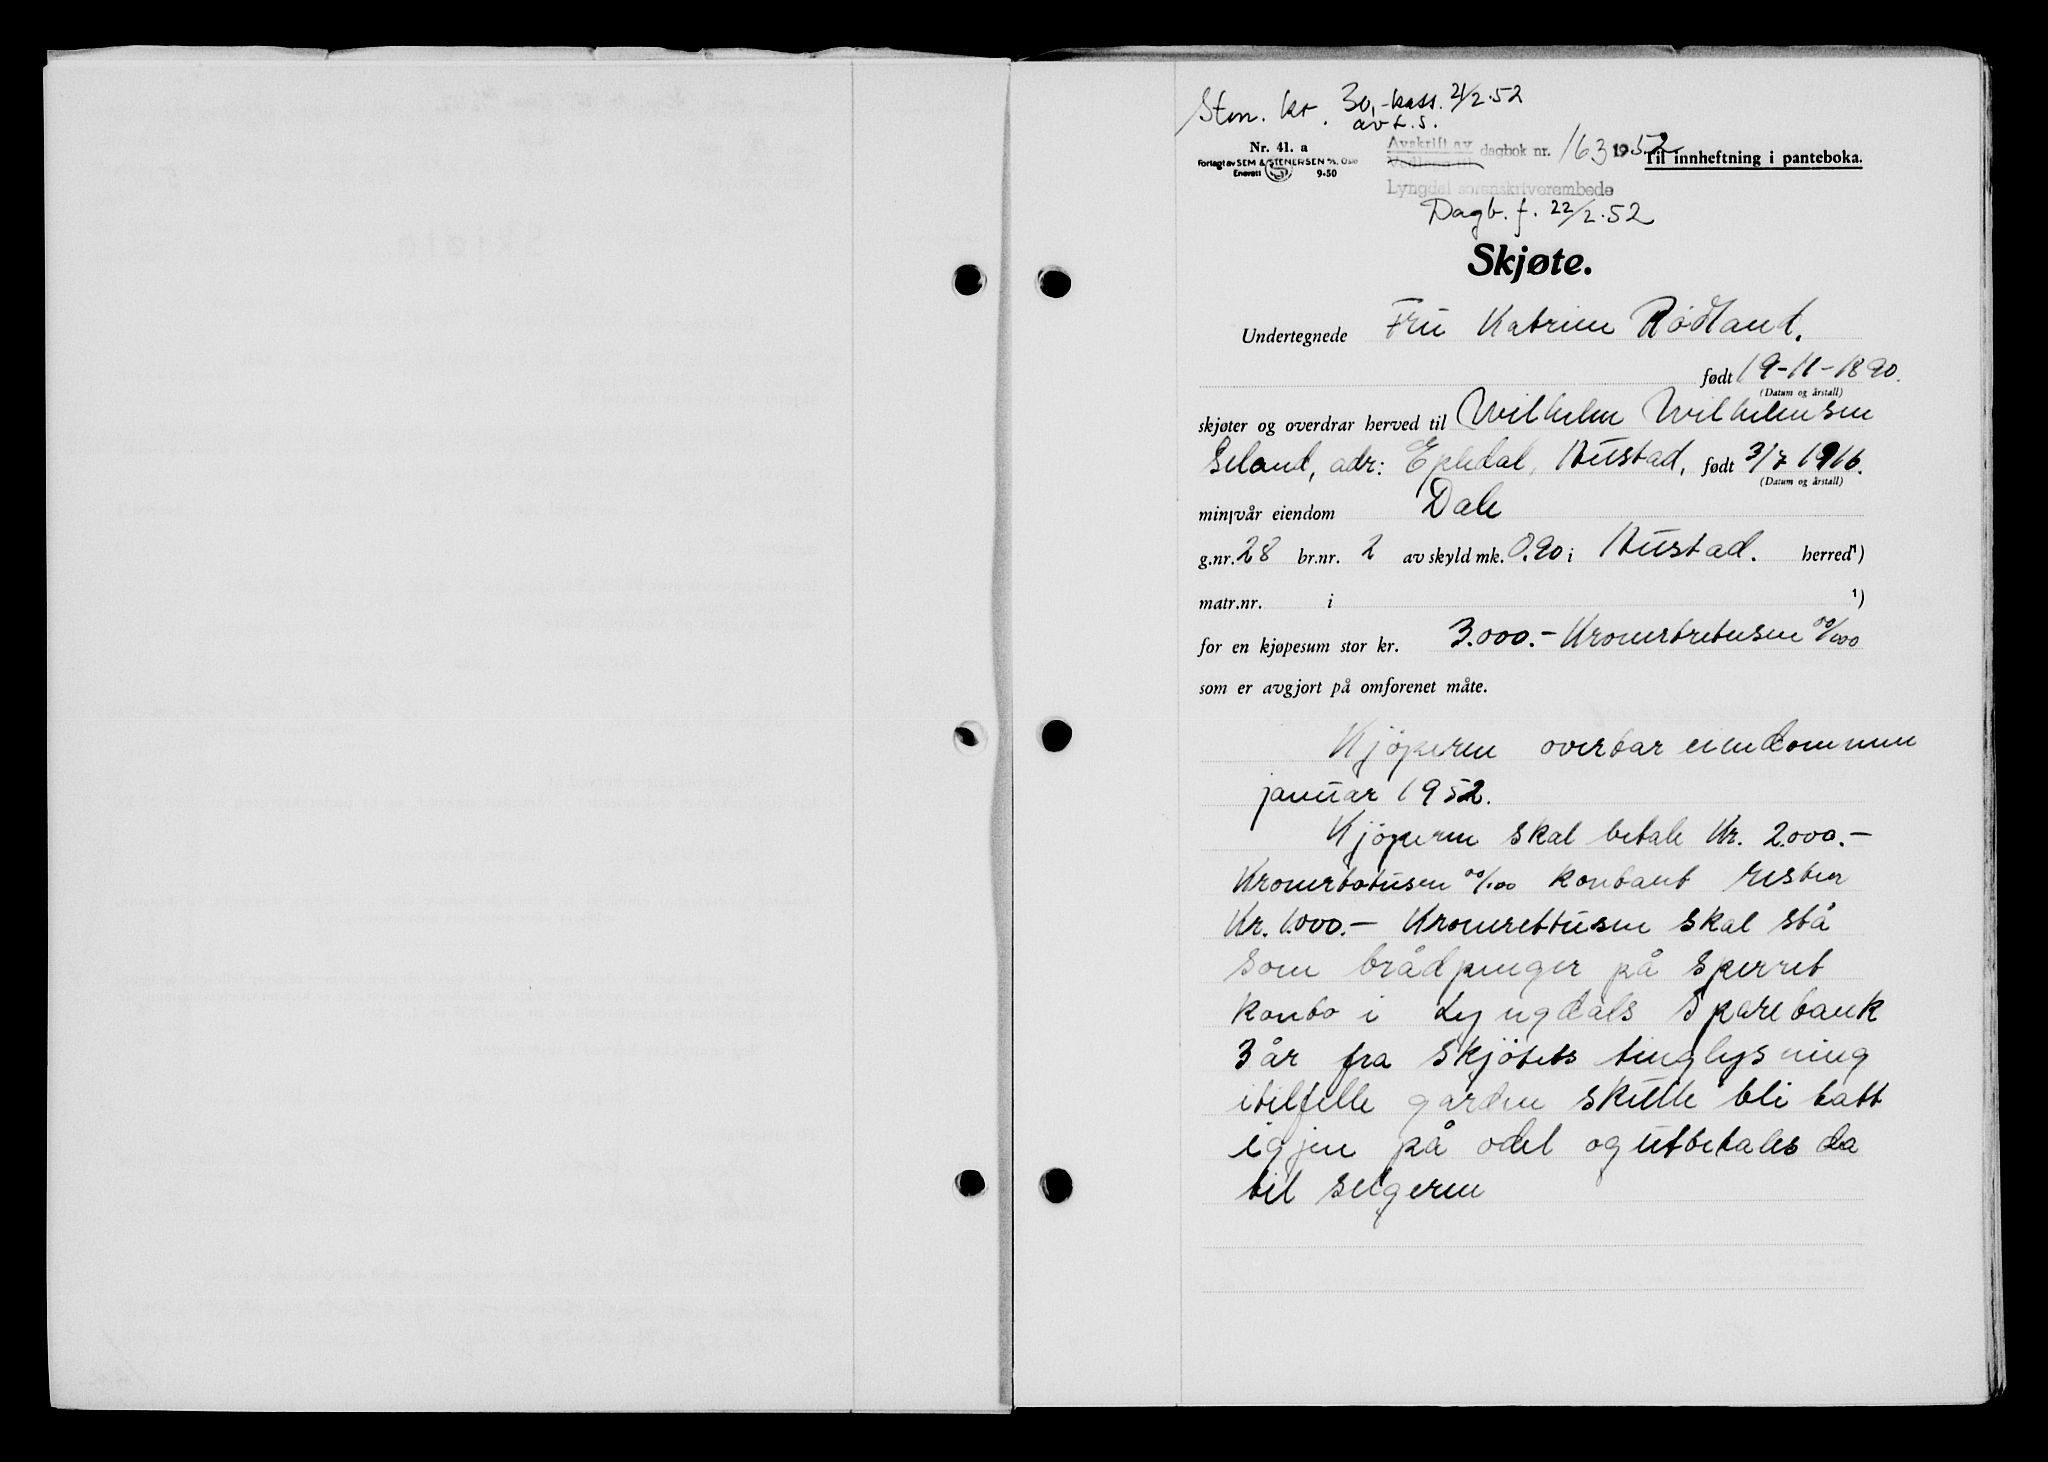 Stm. kr. 30,- kass. 21/2.52
av L.S.
Nr. 41. a
Forlagt av SEM & STENERSEN A/S, Oslo
Enerett 9-50
Avskrift av dagbok nr. 163 1952
Vedlegg til
Til innheftning i panteboka.
Lyngdal sorenskriverembede
Dagb. f. 22/2.52
Skjøte.
Undertegnede Fru Katrine Rödland.
født 19-11-1890.
(Datum og årstall)
skjøter og overdrar herved til Wilhelm Wilhelmsen
Seland, adr: Epledal, Austad, født 3/7 1916.
(Datum og årstall)
min/vår eiendom Dale
g.nr. 28 br.nr. 2 av skyld mk. 0.90 i Austad. herred¹)
matr.nr. i ¹)
for en kjøpesum stor kr. 3.000.- Kronertretusen 00/100
som er avgjort på omforenet måte.
Kjöperen overtar eiendommen
januar 1952.
Kjöperen skal betale Kr. 2.000.-
Kronertotusen 00/100 kontant resten
Kr. 1.000.- Kronerettusen skal stå
som brådpenger på sperret
konto i Lyngdals Sparebank
3 år fra skjötets tinglysning
itilfelle garden skulle bli tatt
igjen på odel og utbetales da
til selgeren